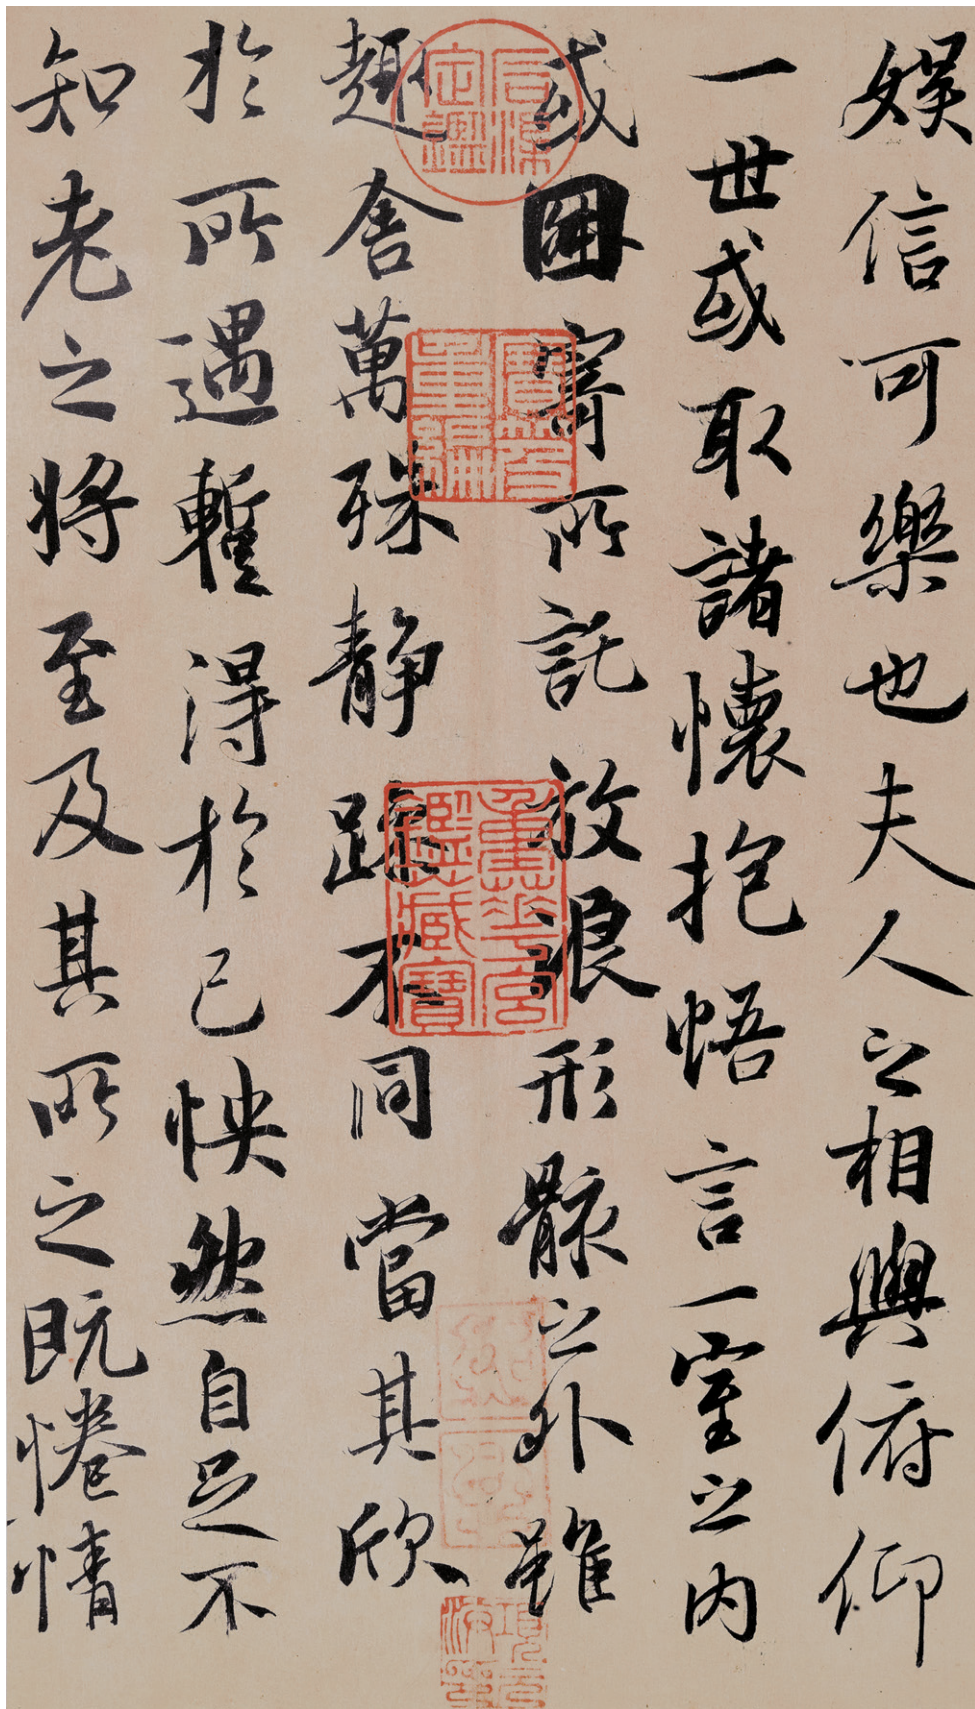 娛信可樂也夫人之相與俯仰
一世或取諸懷抱悟言一室之內
或因寄所託放浪形骸之外雖
趣舍萬殊靜躁不同當其欣
於所遇蹔得於己怏然自足不
知老之將至及其所之既惓情
石渠定鑑
寶笈重編
重華宮鑑藏寶